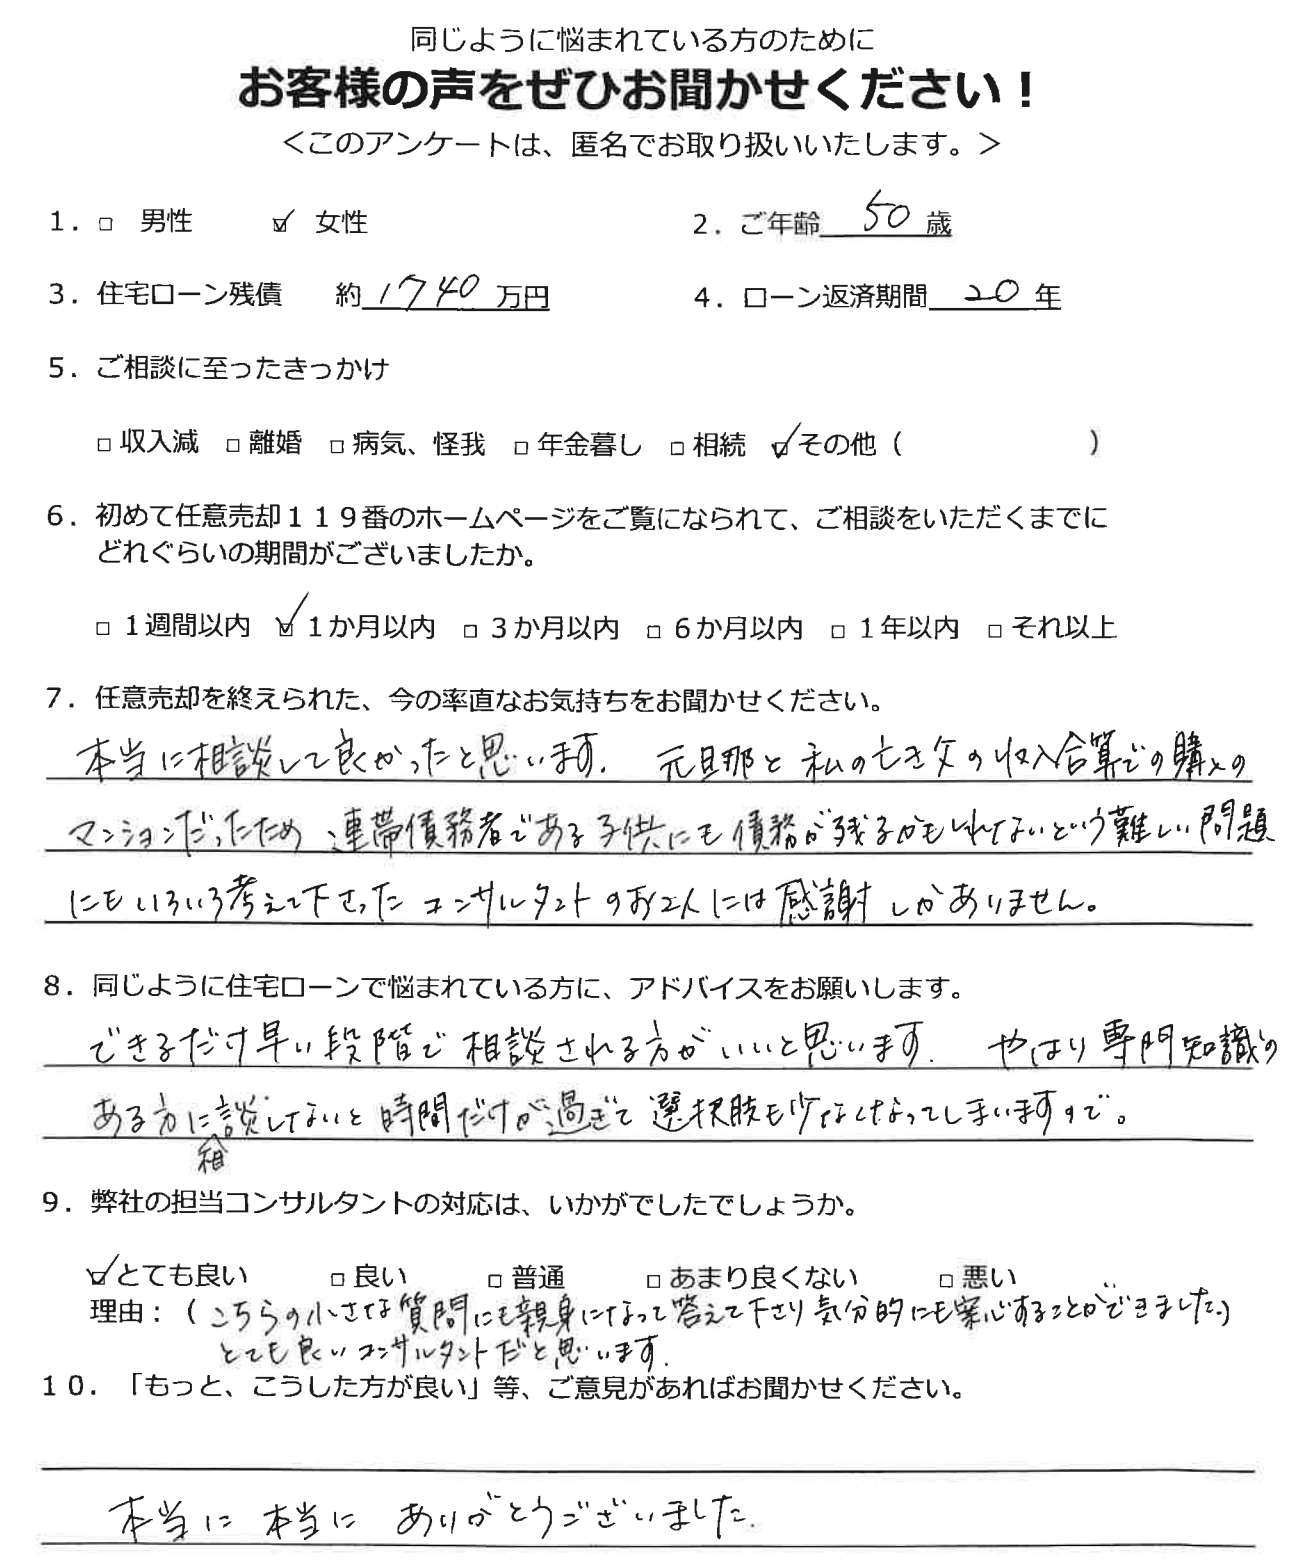 同じように悩まれている方のために
お客様の声をぜひお聞かせください！
＜このアンケートは、匿名でお取り扱いいたします。＞
１．□ 男性 ☑ 女性 ２．ご年齢 50 歳
３．住宅ローン残債 約 1740 万円 ４．ローン返済期間 20 年
５．ご相談に至ったきっかけ
□ 収入減 □ 離婚 □ 病気、怪我 □ 年金暮し □ 相続 ☑ その他（ ）
６．初めて任意売却１１９番のホームページをご覧になられて、ご相談をいただくまでに
どれぐらいの期間がございましたか。
□ １週間以内 ☑ １か月以内 □ ３か月以内 □ ６か月以内 □ １年以内 □ それ以上
７．任意売却を終えられた、今の率直なお気持ちをお聞かせください。
本当に相談して良かったと思います. 元旦那と私の亡き父の収入合算での購入の
マンションだったため 連帯債務者である子供にも債務が残るかもしれないという難しい問題
にもいろいろ考えて下さった コンサルタントのお2人には感謝 しかありません。
８．同じように住宅ローンで悩まれている方に、アドバイスをお願いします。
できるだけ早い段階で相談される方がいいと思います. やはり専門知識の
ある方に相談しないと時間だけが過ぎて選択肢も少なくなってしまいますので。
９．弊社の担当コンサルタントの対応は、いかがでしたでしょうか。
☑ とても良い □ 良い □ 普通 □ あまり良くない □ 悪い
理由：（こちらの小さな質問にも親身になって答えて下さり気分的にも安心することができました。）
とても良いコンサルタントだと思います.
１０．「もっと、こうした方が良い」等、ご意見があればお聞かせください。
本当に 本当に ありがとうございました.